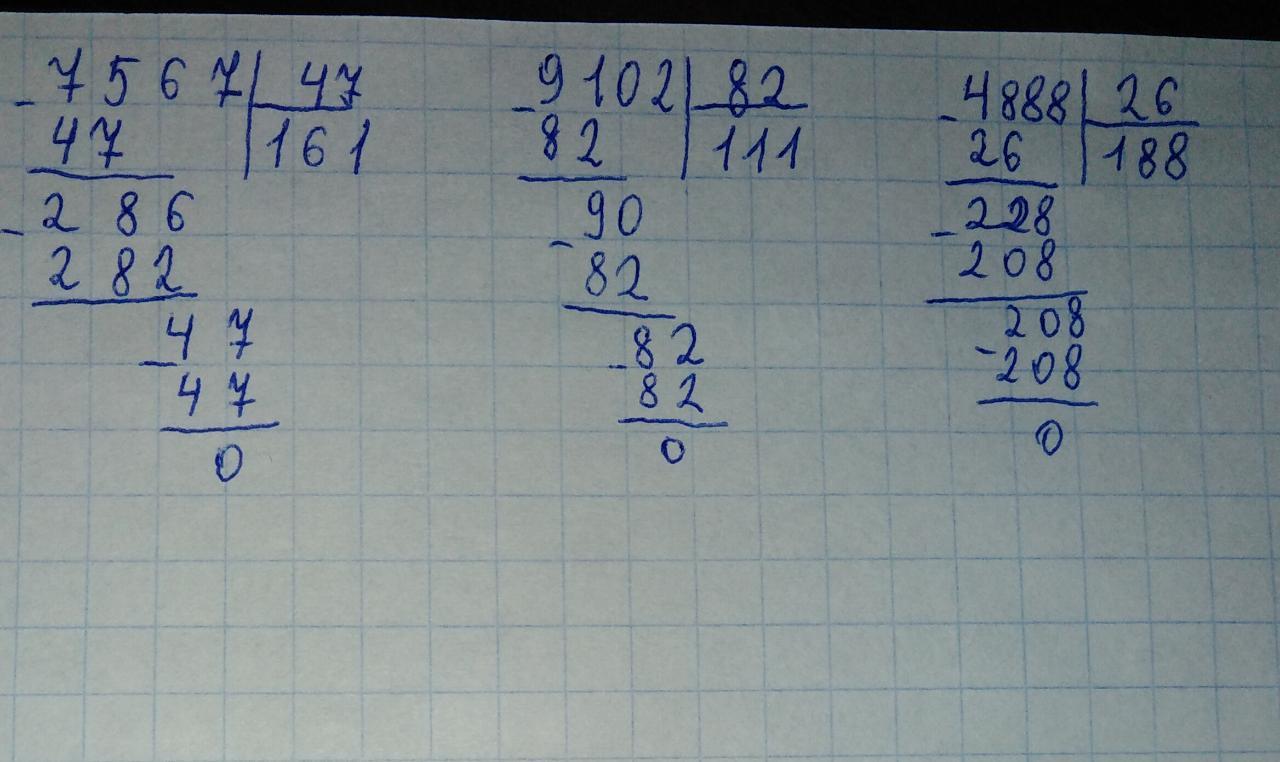 - 7567 | 47
47 | 161
- 286
282
- 47
47
0
- 9102 | 82
82 | 111
- 90
82
- 82
82
0
- 4888 | 26
26 | 188
- 228
208
- 208
208
0